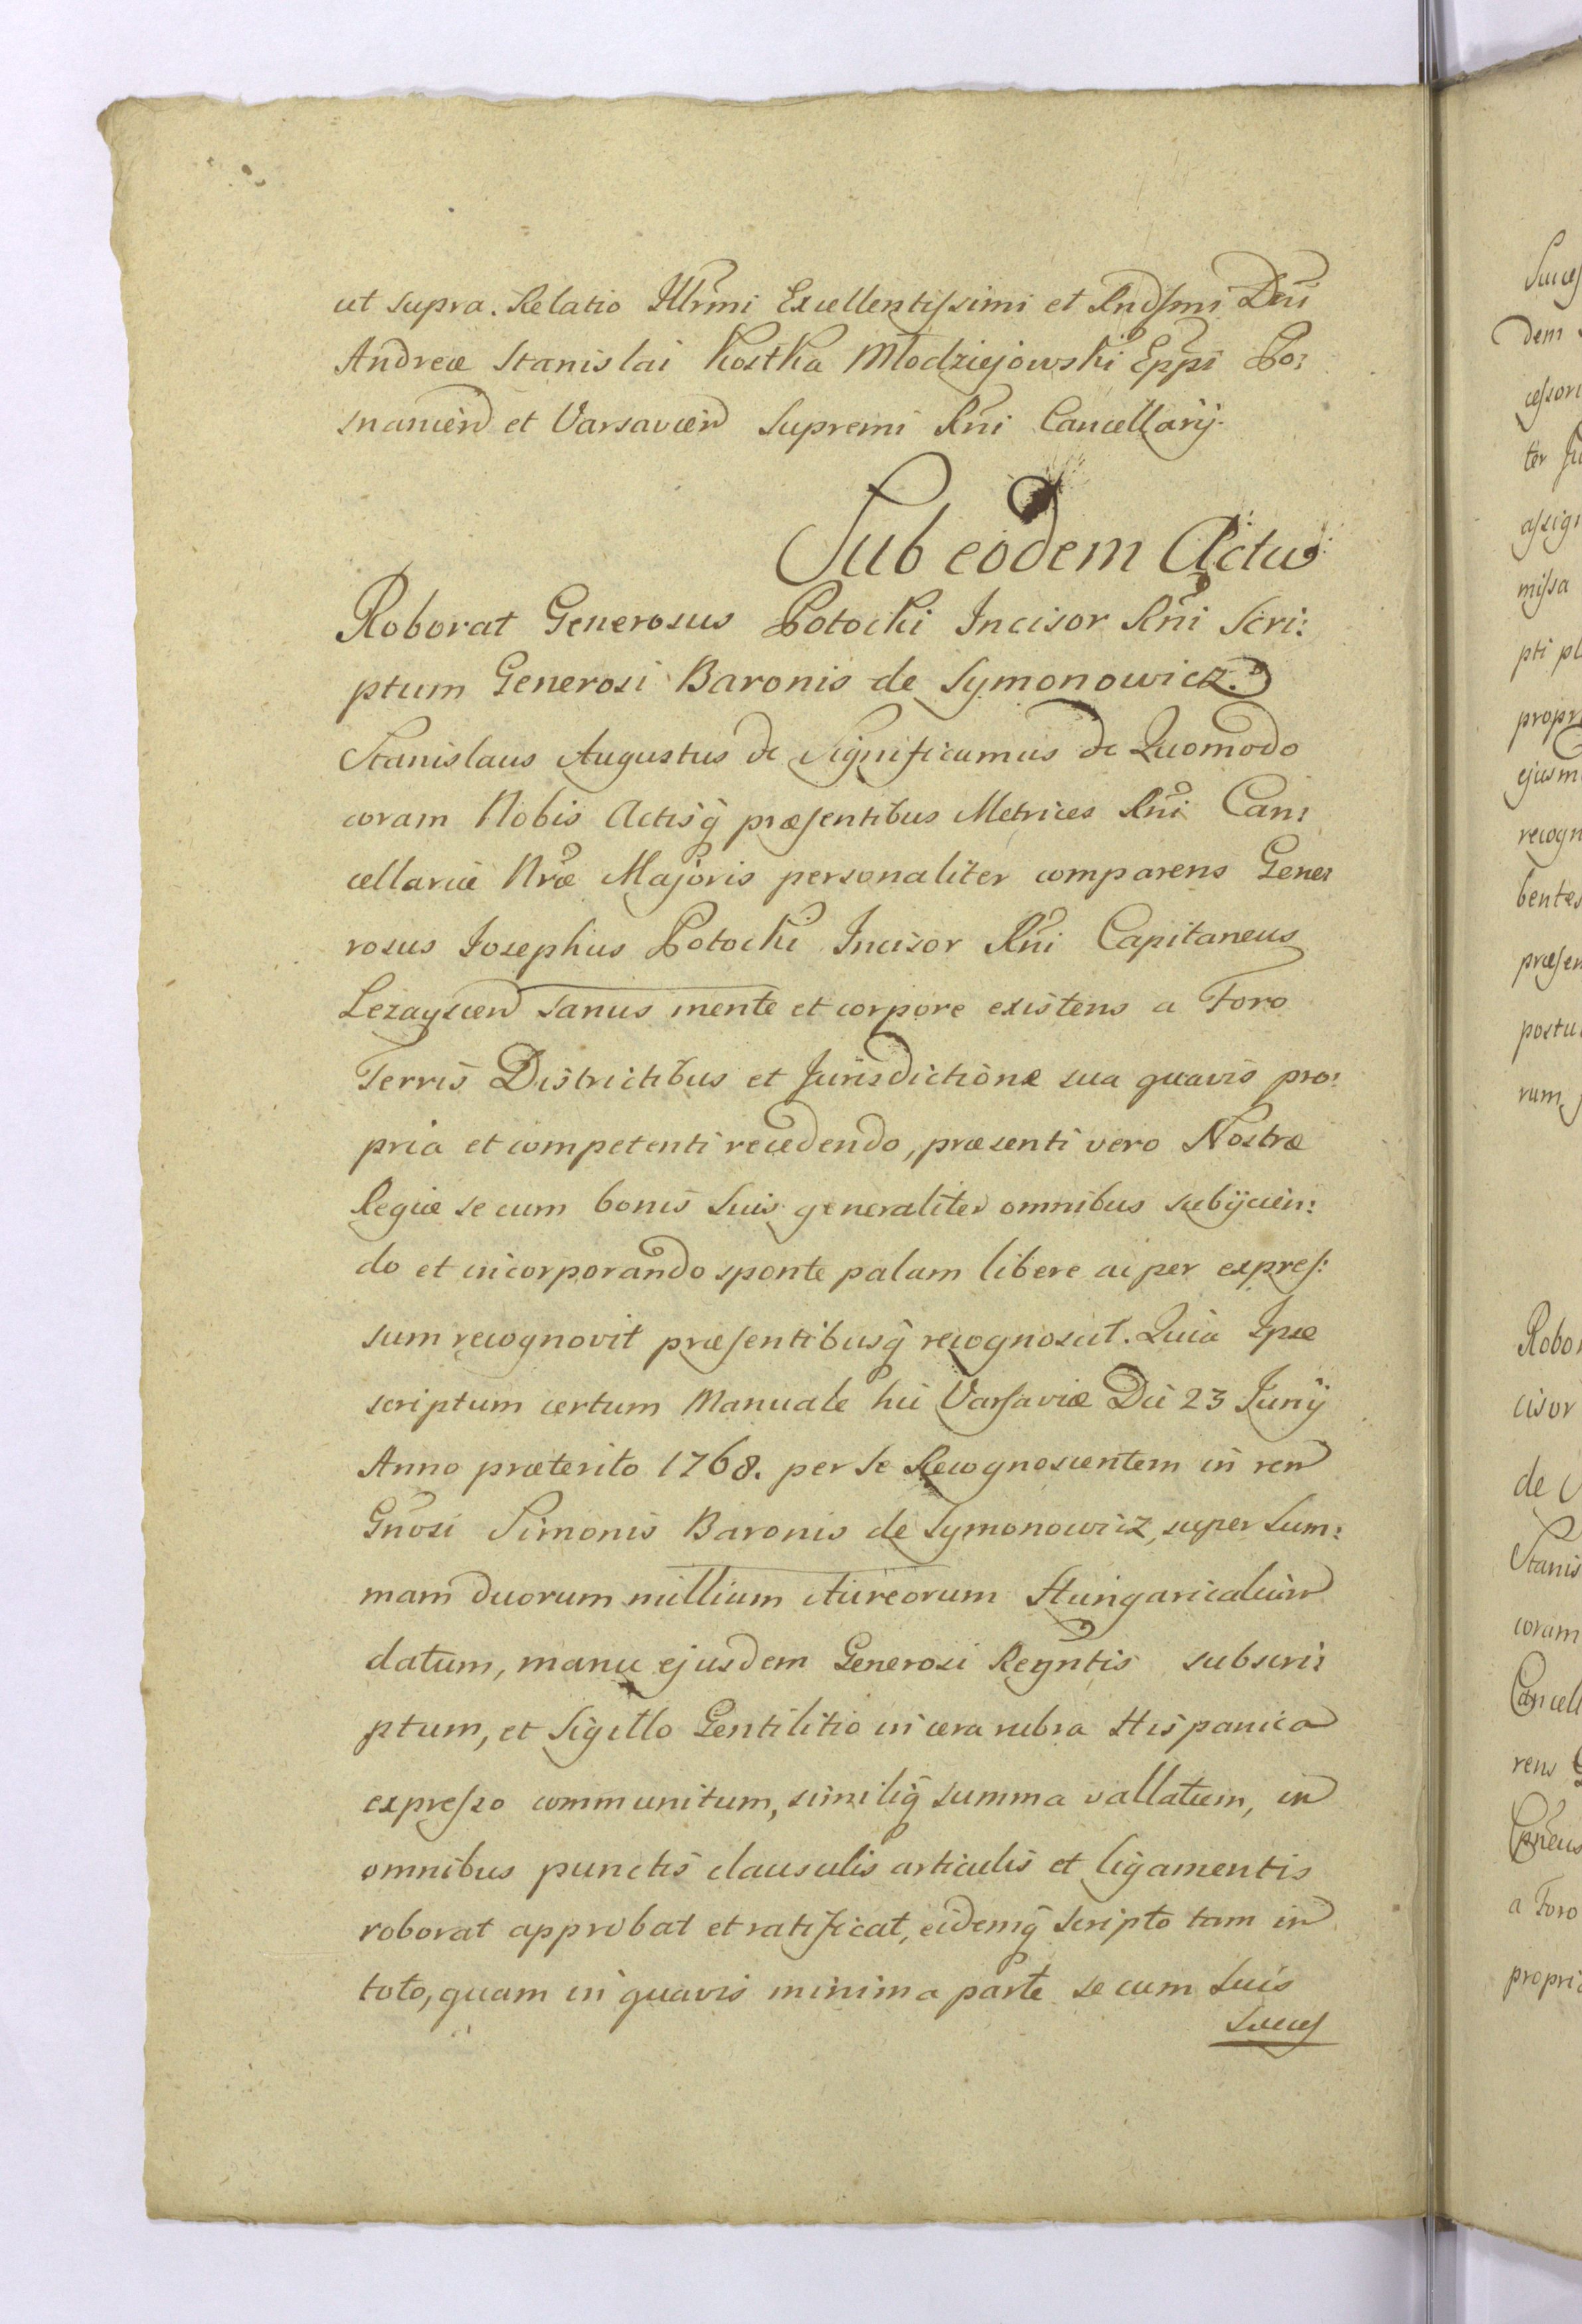 ut supra. Relatio Illrmi Excellentissimi et Rndsmi Dni
Andreæ Stanislai Kostka Młodziejowski Eppi Po:
snanien et Varsavien Supremi Rni Cancellarij.
Sub eodem Actu
Roborat Generosus Potocki Incisor Rni Scri:
ptum Generosi Baronis de Symonowicz.
Stanislaus Augustus &c Significamus &c Quomodo
coram Nobis Actisq præsentibus Metrices Rni Can:
cellariæ Nræ Majoris personaliter comparens Gene:
rosus Josephus Potocki Incisor Rni Capitaneus
Lezayscen sanus mente et corpore existens a Foro
Terris Districtibus et Jurisdictione sua quavis pro:
pria et competenti recedendo, præsenti vero Nostræ
Regiæ se cum bonis Suis generaliter omnibus subijcien:
do et incorporando sponte palam libere ac per expres:
sum recognovit præsentibusq recognoscit. Quia Ipse
scriptum certum Manuale hic Varsaviæ Die 23 Junij
Anno præterito 1768. per Se Recognoscentem in rem
Gnosi Simonis Baronis de Symonowicz, super Sum:
mam duorum millium Aureorum Hungaricalium
datum, manu ejusdem Generosi Regntis subscri:
ptum, et Sigillo Gentilitio in cera rubra Hispanica
expresso communitum, similiq summa vallatum, in
omnibus punctis clausulis articulis et ligamentis
roborat approbat et ratificat, eidemq scripto tam in
toto, quam in quavis minima parte se cum Suis
Succes